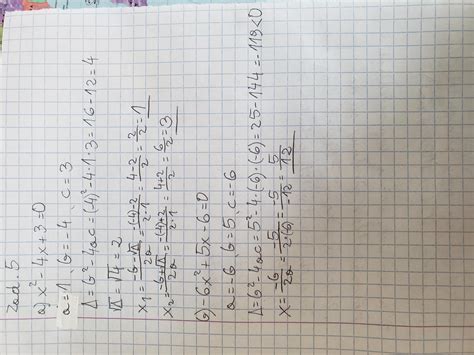 Zad. 5
a) x² - 4x + 3 = 0
a = 1 b = -4 c = 3
Δ = b² - 4ac = (-4)² - 4·1·3 = 16 - 12 = 4
√Δ = √4 = 2
x₁ = (-b - √Δ)/2a = (-(-4) - 2)/(2·1) = (4 - 2)/2 = 2/2 = 1
x₂ = (-b + √Δ)/2a = (-(-4) + 2)/(2·1) = (4 + 2)/2 = 6/2 = 3
b) -6x² + 5x - 6 = 0
a = -6 b = 5 c = -6
Δ = b² - 4ac = 5² - 4·(-6)·(-6) = 25 - 144 = -119 < 0
x = -b/2a = -5/(2·(-6)) = -5/-12 = 5/12